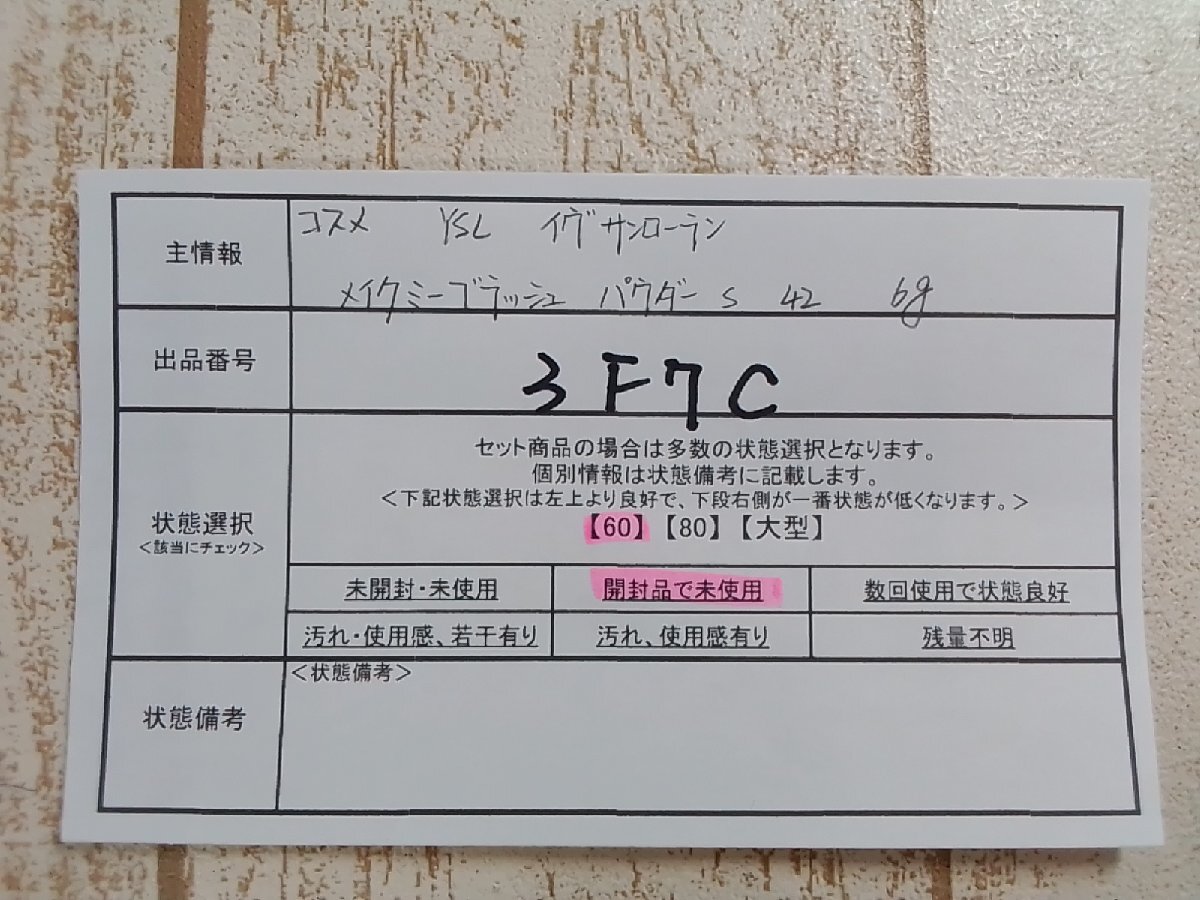 主情報
コスメ YSL イヴサンローラン
メイクミーブラッシュ パウダー S 42 6g
出品番号
3F7C
状態選択
<該当にチェック>
セット商品の場合は多数の状態選択となります。
個別情報は状態備考に記載します。
<下記状態選択は左上より良好で、下段右側が一番状態が低くなります。>
【60】【80】【大型】
未開封・未使用 開封品で未使用 数回使用で状態良好
汚れ・使用感、若干有り 汚れ、使用感有り 残量不明
状態備考
<状態備考>